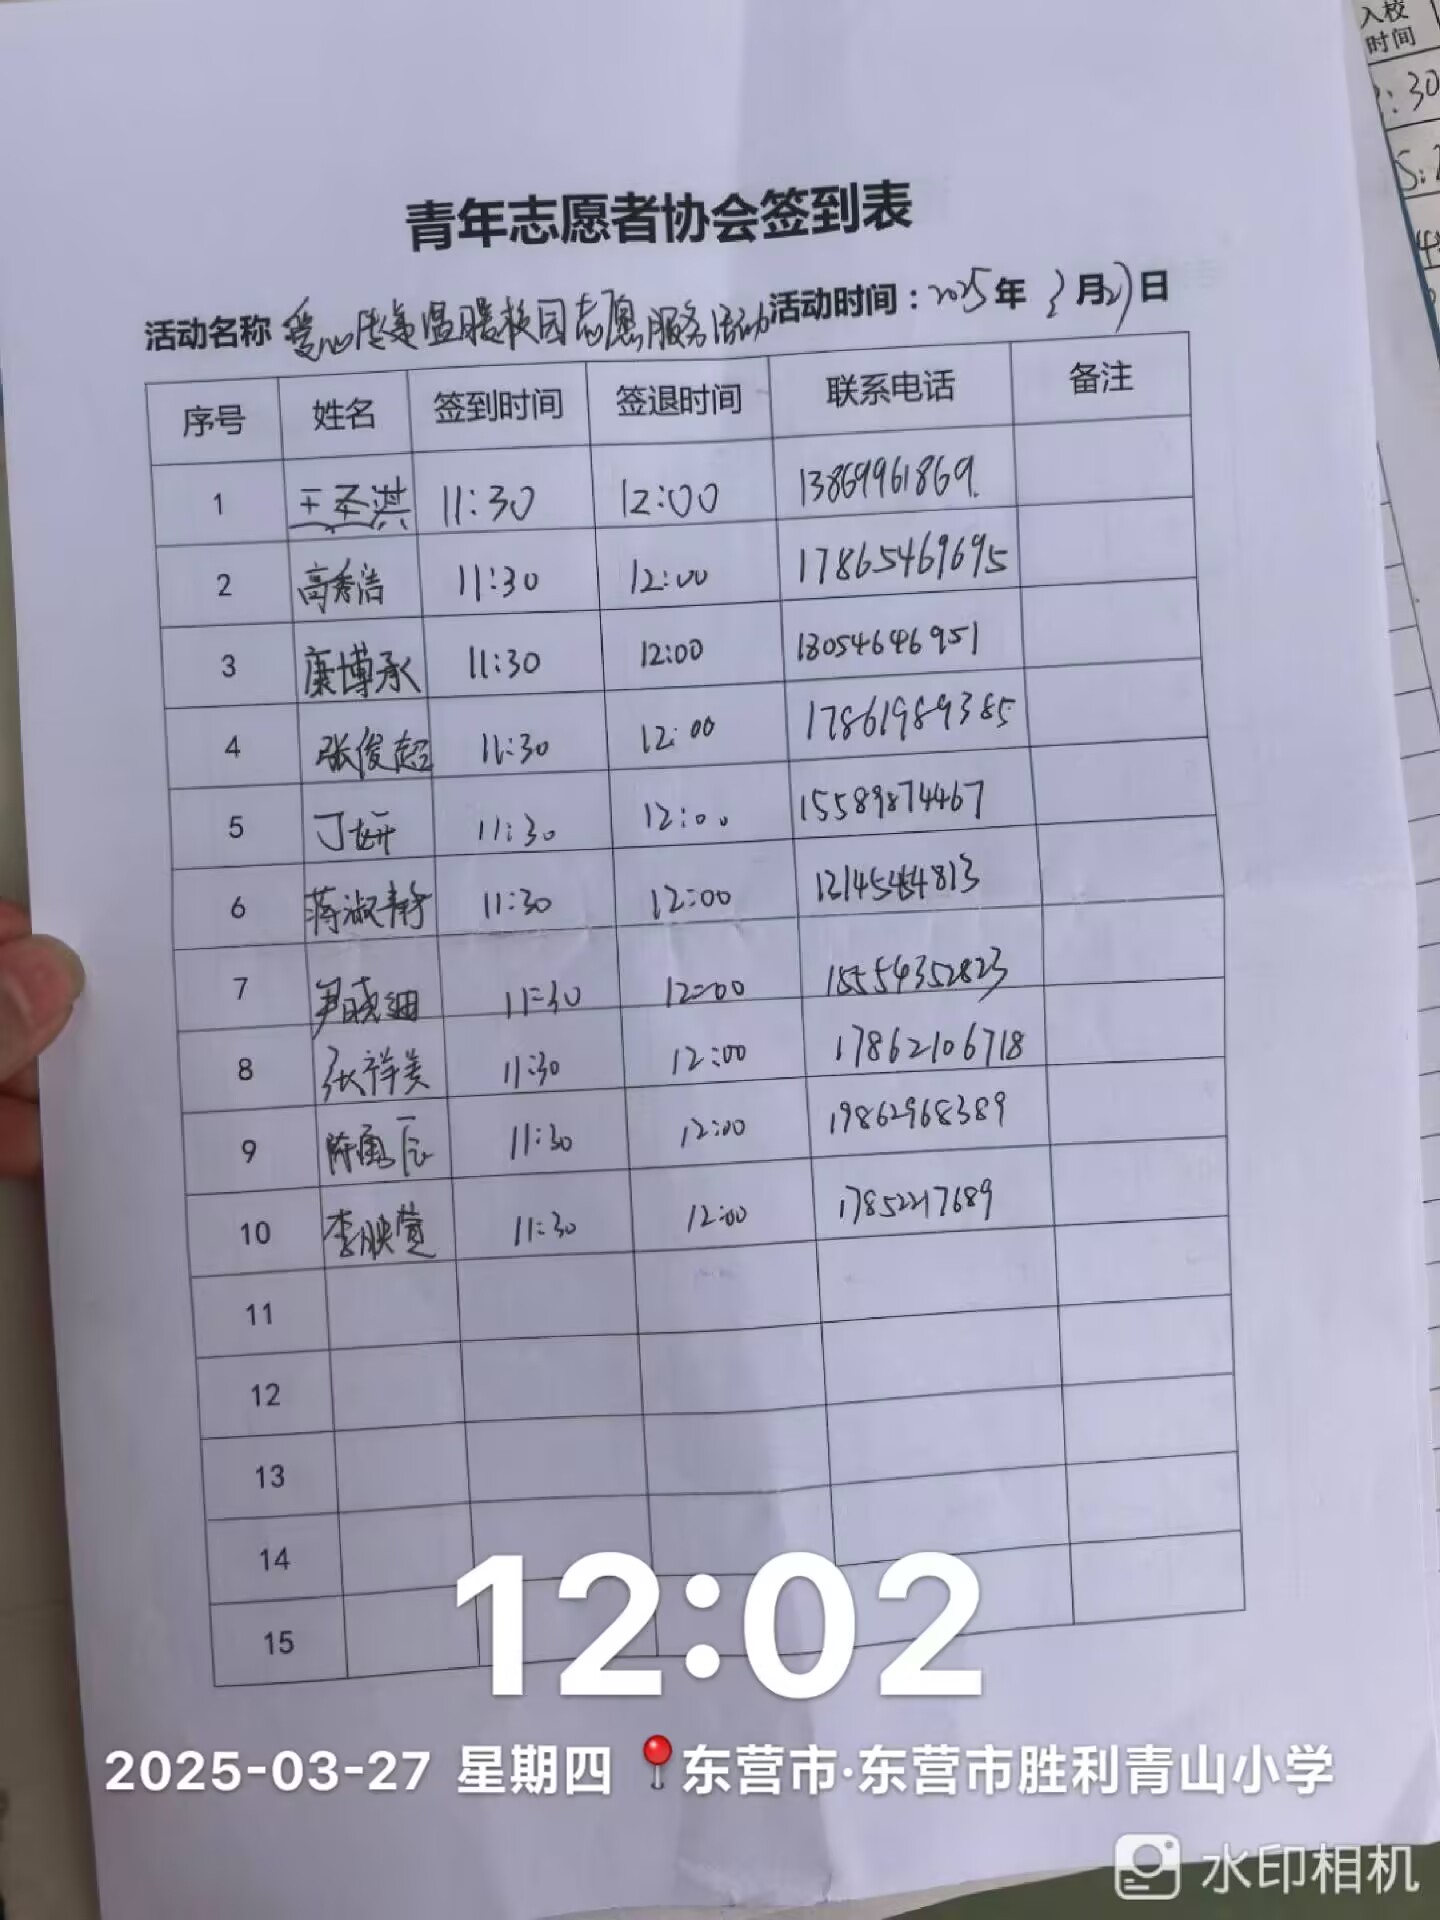 入校
时间
:30
青年志愿者协会签到表
活动名称 爱心传递温暖校园志愿服务活动 活动时间：2025年3月27日
序号 姓名 签到时间 签退时间 联系电话 备注
1 王圣淇 11:30 12:00 13869961869
2 高秀浩 11:30 12:00 17865469695
3 康博承 11:30 12:00 18054646951
4 张俊超 11:30 12:00 17861989385
5 丁妍 11:30 12:00 15589874467
6 蒋淑静 11:30 12:00
7 尹晓 11:30 12:00 15554352823
8 张祥美 11:30 12:00 17862106718
9 陈 辰 11:30 12:00 19862968389
10 李映萱 11:30 12:00 17852217689
11
12
13
14
15
12:02
2025-03-27 星期四 东营市·东营市胜利青山小学
水印相机